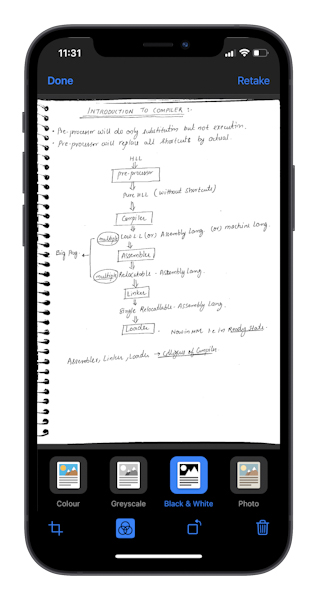 11:31
Done Retake
INTRODUCTION TO COMPILER :-
• Pre-processor will do only substitution but not execution.
• Pre-processor will replace all shortcuts by actual.
HLL
pre-processor
Pure HLL (without shortcuts)
Compiler
multiple Low L.L (or) Assembly Lang. (or) machine lang.
Big Prog Assembler
multiple Relocatable - Assembly lang.
Linker
Single Relocatable - Assembly lang.
Loader Now in MM i.e in Ready State.
Assembler, Linker, Loader → Colleagues of Compiler
Colour Greyscale Black & White Photo